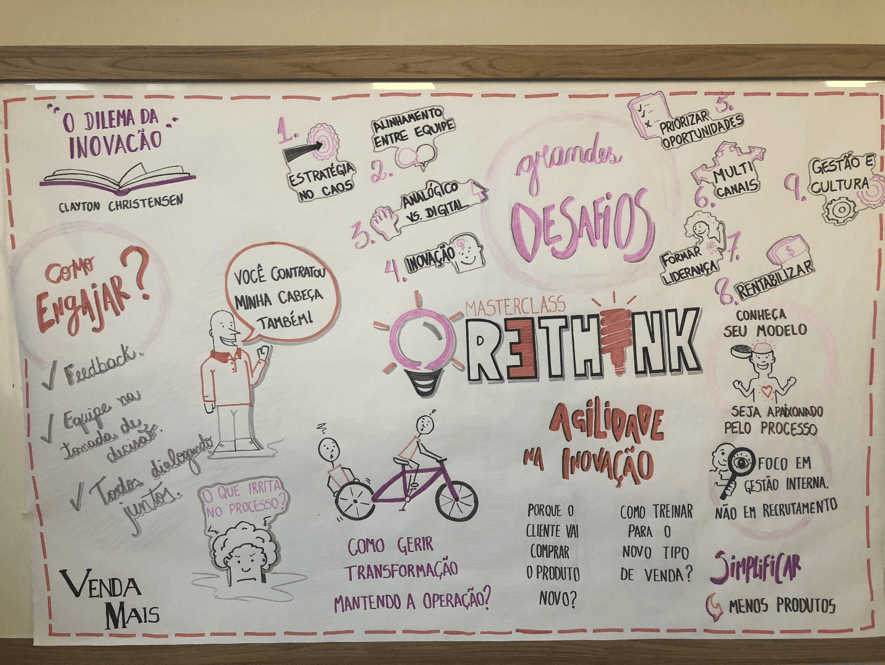 "O DILEMA DA
INOVAÇÃO"
CLAYTON CHRISTENSEN
COMO
ENGAJAR?
✓ Feedback.
✓ Equipe na
tomada de
decisão.
✓ Todos dialogando
juntos.
VENDA
MAIS
VOCÊ CONTRATOU
MINHA CABEÇA
TAMBÉM!
O QUE IRRITA
NO PROCESSO?
grandes
DESAFIOS
1.
ESTRATÉGIA
NO CAOS
2.
ALINHAMENTO
ENTRE EQUIPE
3.
ANALÓGICO
VS. DIGITAL
4.
INOVAÇÃO
5.
PRIORIZAR
OPORTUNIDADES
6.
MULTI
CANAIS
7.
FORMAR
LIDERANÇA
8.
RENTABILIZAR
9.
GESTÃO E
CULTURA
MASTERCLASS
RETHINK
AGILIDADE
NA INOVAÇÃO
COMO GERIR
TRANSFORMAÇÃO
MANTENDO A OPERAÇÃO?
PORQUE O
CLIENTE VAI
COMPRAR
O PRODUTO
NOVO?
COMO TREINAR
PARA O
NOVO TIPO
DE VENDA?
CONHEÇA
SEU MODELO
SEJA APAIXONADO
PELO PROCESSO
FOCO EM
GESTÃO INTERNA,
NÃO EM RECRUTAMENTO
SIMPLIFICAR
MENOS PRODUTOS